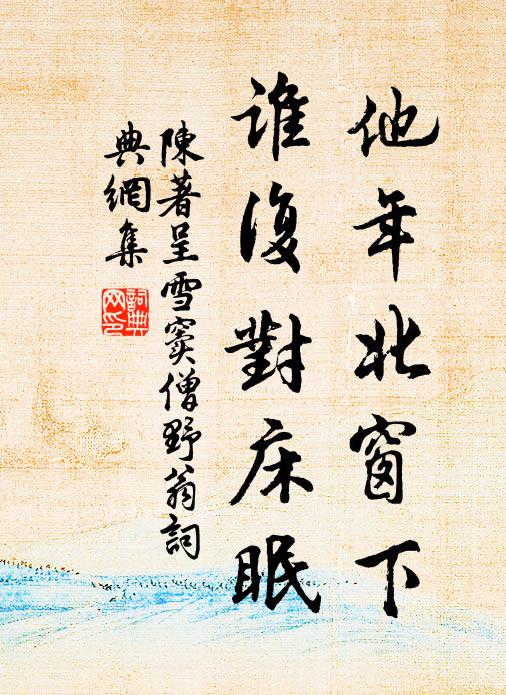 他年北窗下
誰復對床眠
陳著呈雪竇僧野翁詞
典網集
詞典
网印